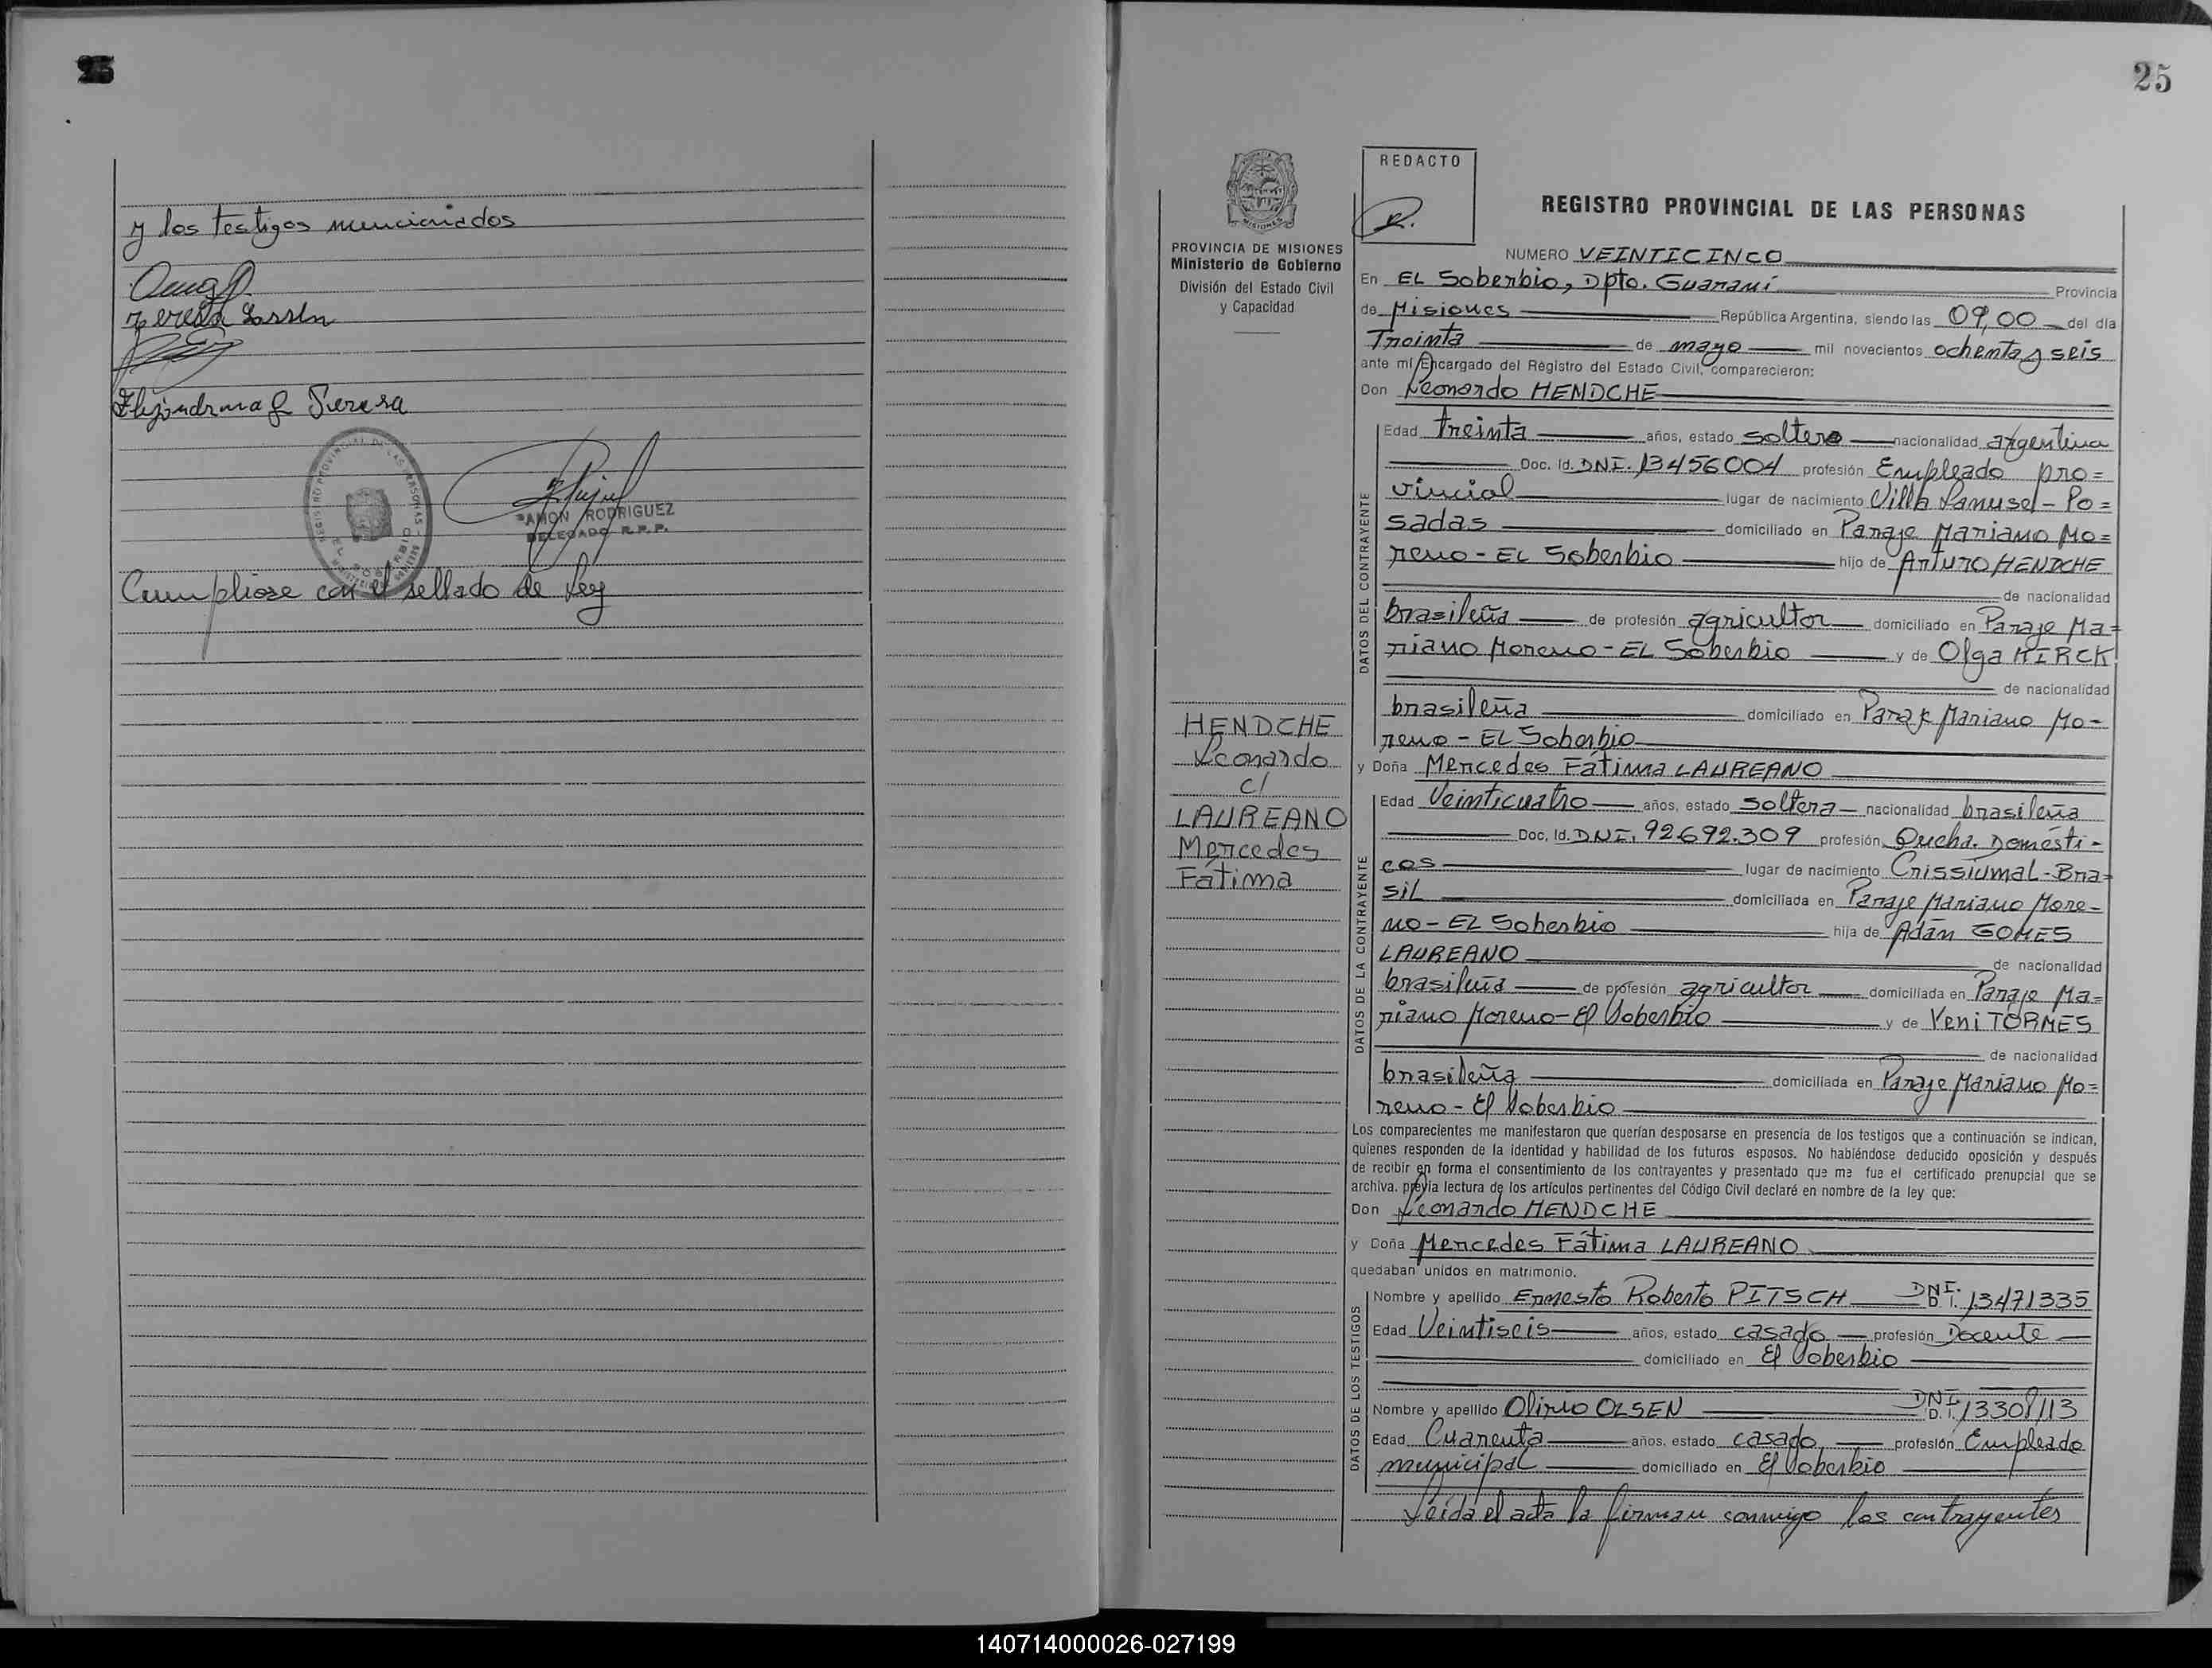 25
y los testigos mencionados
Teresa
Cumpliose con el sellado de Ley
RAMON RODRIGUEZ
DELEGADO R.P.P.
25
REDACTO
PROVINCIA DE MISIONES
Ministerio de Gobierno
División del Estado Civil
y Capacidad
HENDCHE
Leonardo
c/
LAUREANO
Mercedes
Fátima
REGISTRO PROVINCIAL DE LAS PERSONAS
NUMERO VEINTICINCO
En EL Soberbio, Dpto. Guaraní Provincia
de Misiones República Argentina, siendo las 09,00 del día
Treinta de mayo mil novecientos ochenta y seis
ante mí Encargado del Registro del Estado Civil, comparecieron:
Don Leonardo HENDCHE
DATOS DEL CONTRAYENTE
Edad treinta años, estado soltero nacionalidad argentina
Doc. Id. DNI. 13456004 profesión Empleado pro=
vincial lugar de nacimiento Villa Lanusel - Po=
sadas domiciliado en Paraje Mariano Mo=
reno - EL Soberbio hijo de Arturo HENDCHE
de nacionalidad
brasileña de profesión agricultor domiciliado en Paraje Ma=
riano Moreno - EL Soberbio y de Olga KIRCK
de nacionalidad
brasileña domiciliado en Paraje Mariano Mo-
reno - EL Soberbio
y Doña Mercedes Fátima LAUREANO
DATOS DE LA CONTRAYENTE
Edad Veinticuatro años, estado soltera nacionalidad brasileña
Doc. Id. DNI. 92.692.309 profesión Queha. Domésti-
cos lugar de nacimiento Crissiumal - Bra=
sil domiciliada en Paraje Mariano More-
no - EL Soberbio hija de Adán GOMES
LAUREANO de nacionalidad
brasileña de profesión agricultor domiciliada en Paraje Ma=
riano Moreno - El Soberbio y de Veni TORMES
de nacionalidad
brasileña domiciliada en Paraje Mariano Mo=
reno - El Soberbio
Los comparecientes me manifestaron que querían desposarse en presencia de los testigos que a continuación se indican,
quienes responden de la identidad y habilidad de los futuros esposos. No habiéndose deducido oposición y después
de recibir en forma el consentimiento de los contrayentes y presentado que me fue el certificado prenupcial que se
archiva. previa lectura de los artículos pertinentes del Código Civil declaré en nombre de la ley que:
Don Leonardo HENDCHE
y Doña Mercedes Fátima LAUREANO
quedaban unidos en matrimonio.
DATOS DE LOS TESTIGOS
Nombre y apellido Ernesto Roberto PITSCH DNI. D. I. 13471335
Edad Veintiseis años, estado casado profesión Docente
domiciliado en El Soberbio
Nombre y apellido Olirio OLSEN DNI. D. I. 13308113
Edad Cuarenta años, estado casado profesión Empleado
municipal domiciliado en El Soberbio
Leída el acta la firman conmigo los contrayentes
140714000026-027199